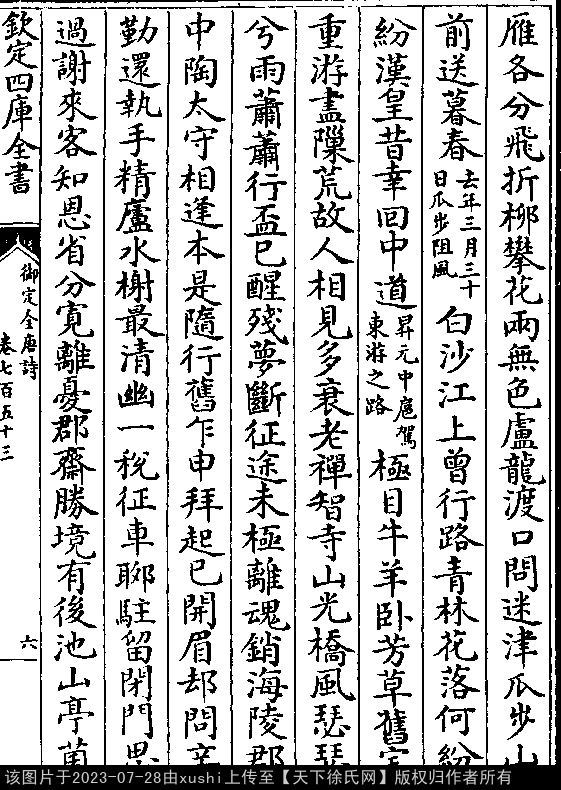 雁各分飛折柳攀花兩無色盧龍渡口問迷津瓜步山
前送暮春去年三月三十日瓜步阻風白沙江上曾行路青林花落何紛
紛漢皇昔幸回中道昇元中扈駕東游之路極目牛羊卧芳草舊宅
重游盡隟荒故人相見多衰老禪智寺山光橋風瑟瑟
兮雨蕭蕭行盃已醒殘夢斷征途未極離魂銷海陵郡
中陶太守相逢本是隨行舊乍申拜起已開眉却問辛
勤還執手精廬水榭最清幽一稅征車聊駐留閉門思
過謝來客知恩省分寛離憂郡齋勝境有後池山亭菌
欽定四庫全書
御定全唐詩
卷七百五十三
六
该图片于2023-07-28由xushi上传至【天下徐氏网】版权归作者所有